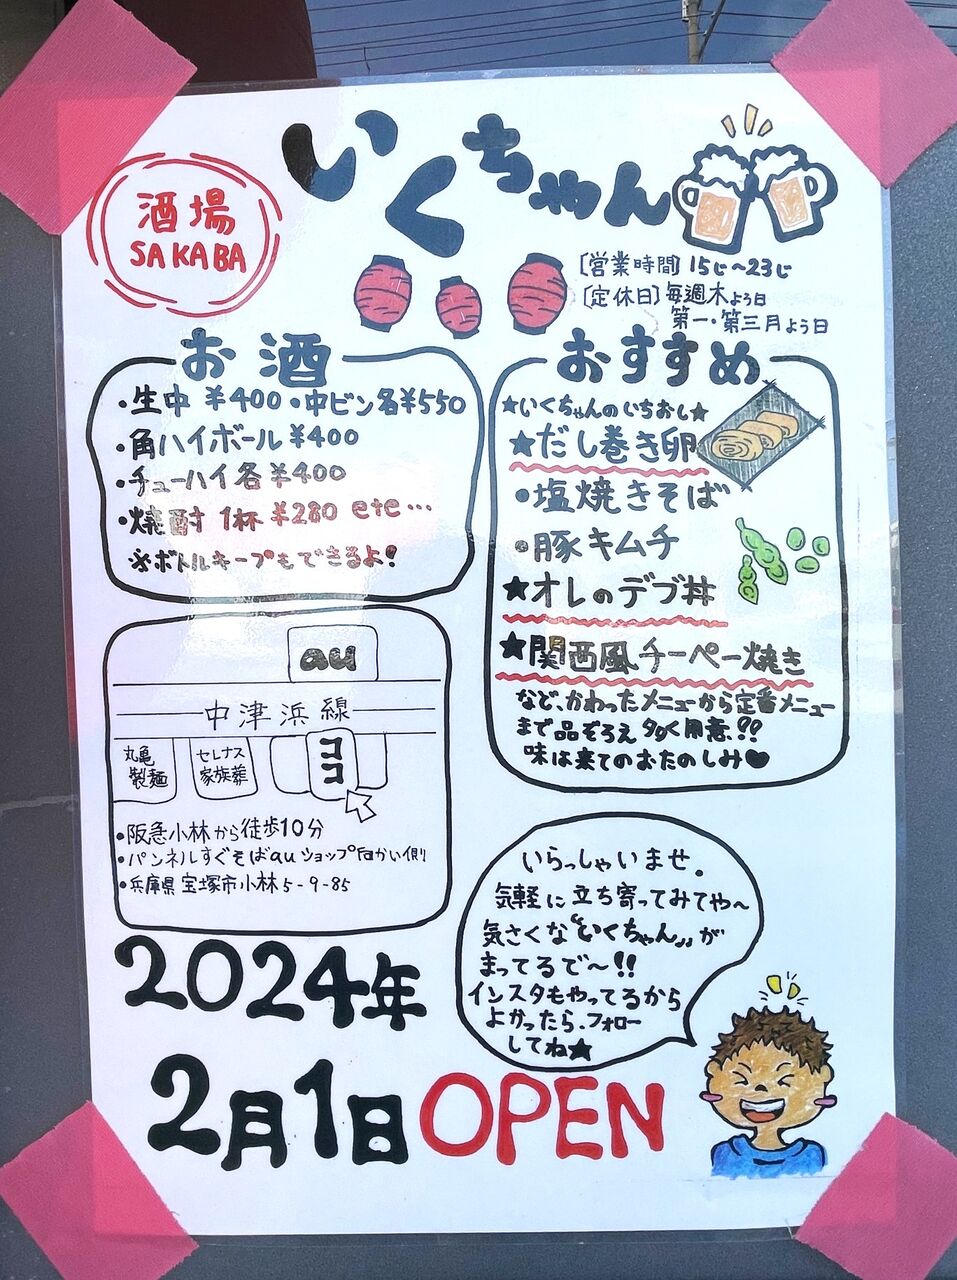 いくちゃん
酒場
SAKABA
[営業時間] 15じ〜23じ
[定休日] 毎週木よう日
第一・第三月よう日
お酒
・生中 ¥400 ・中ビン各¥550
・角ハイボール ¥400
・チューハイ各 ¥400
・焼酎 1杯 ¥280 etc…
※ボトルキープもできるよ!
おすすめ
★いくちゃんのいちおし★
★だし巻き卵
・塩焼きそば
・豚キムチ
★オレのデブ丼
★関西風チーペー焼き
など、かわったメニューから定番メニュー
まで品ぞろえ多く用意!!
味は来てのおたのしみ♥
au
中津浜線
丸亀
製麺
セレナス
家族葬
ココ
・阪急小林から徒歩10分
・パンネルすぐそばauショップ向かい側
・兵庫県宝塚市小林5-9-85
いらっしゃいませ。
気軽に立ち寄ってみてや〜
気さくな"いくちゃん"が
まってるで〜!!
インスタもやってるから
よかったら、フォロー
してね★
2024年
2月1日OPEN